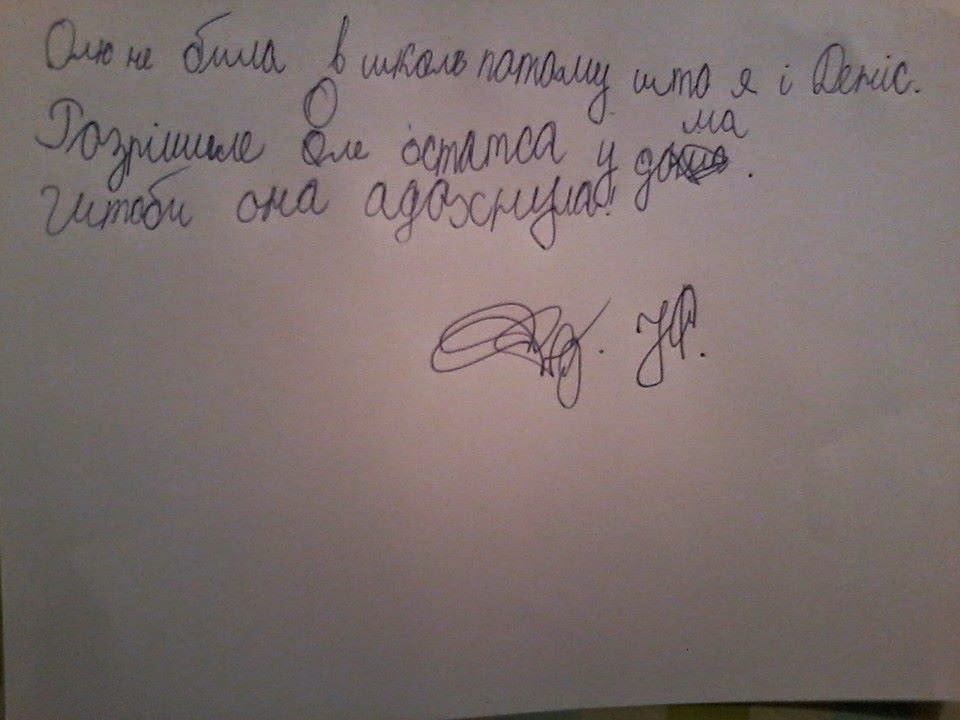 Олю не била в школь патаму што я і Деніс.
Розрішиле Оле остатса у дома.
Штоби она адохнула.